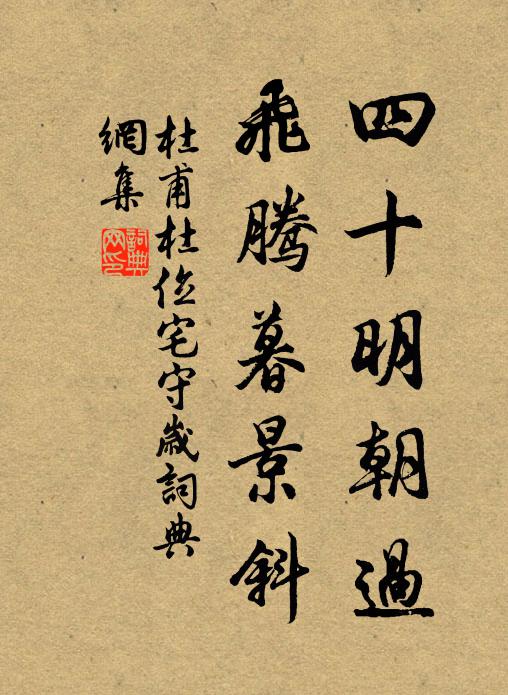 四十明朝過
飛騰暮景斜
杜甫杜位宅守歲詞典
網集
詞典
网印